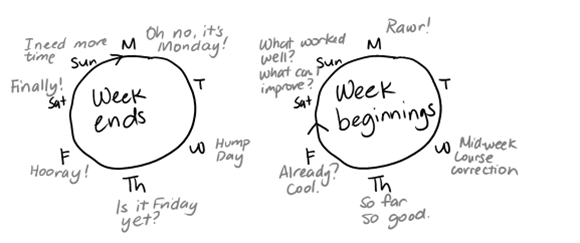 I need more
time
Sun
M
Oh no, it's
Monday!
Finally!
Sat
Week
ends
T
F
Hooray!
W
Hump
Day
Th
Is it Friday
yet?
What worked
well?
What can I
improve?
Sun
M
Rawr!
Sat
Week
beginnings
T
F
Already?
Cool.
W
Mid-week
Course
correction
Th
So far
so good.